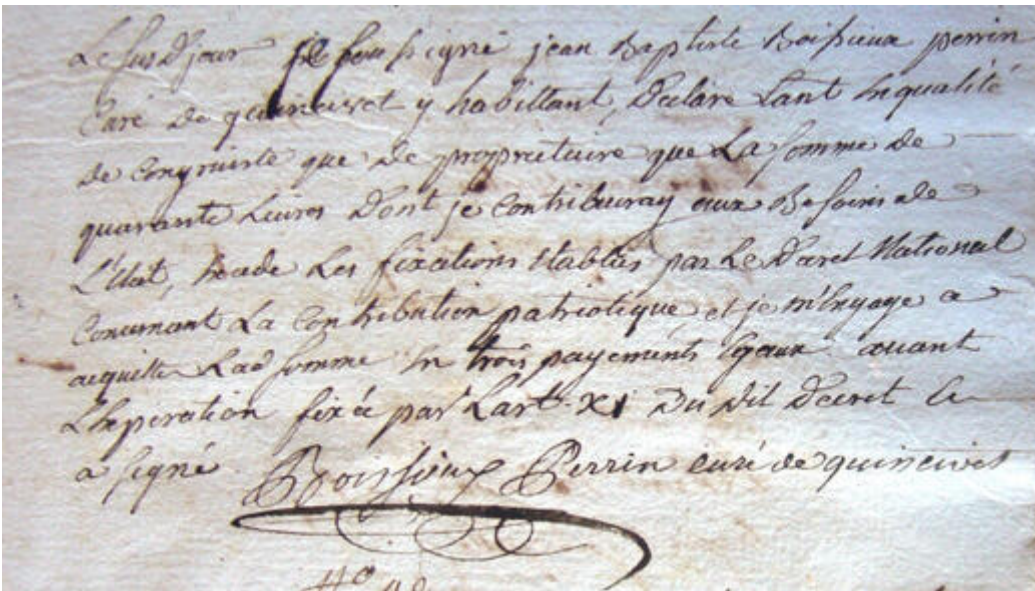 Le susd jour je soussigné jean Baptiste Boissieux perrin
Curé de quincivet y habittant, Declare tant En qualité
de Congruiste que de proprietaire que La somme de
quarante Livres Dont je Contribueray aux Besoins de
L'Etat, Excede Les fixations Etablies par Le Decret National
Concernant La Contribution patriotique et je m'Engage a
acquitter Lad somme En trois payements Egaux avant
L'Expiration fixée par L'art. XI Du dit Decret Et
a signé Boissieux Perrin curé de quincivet